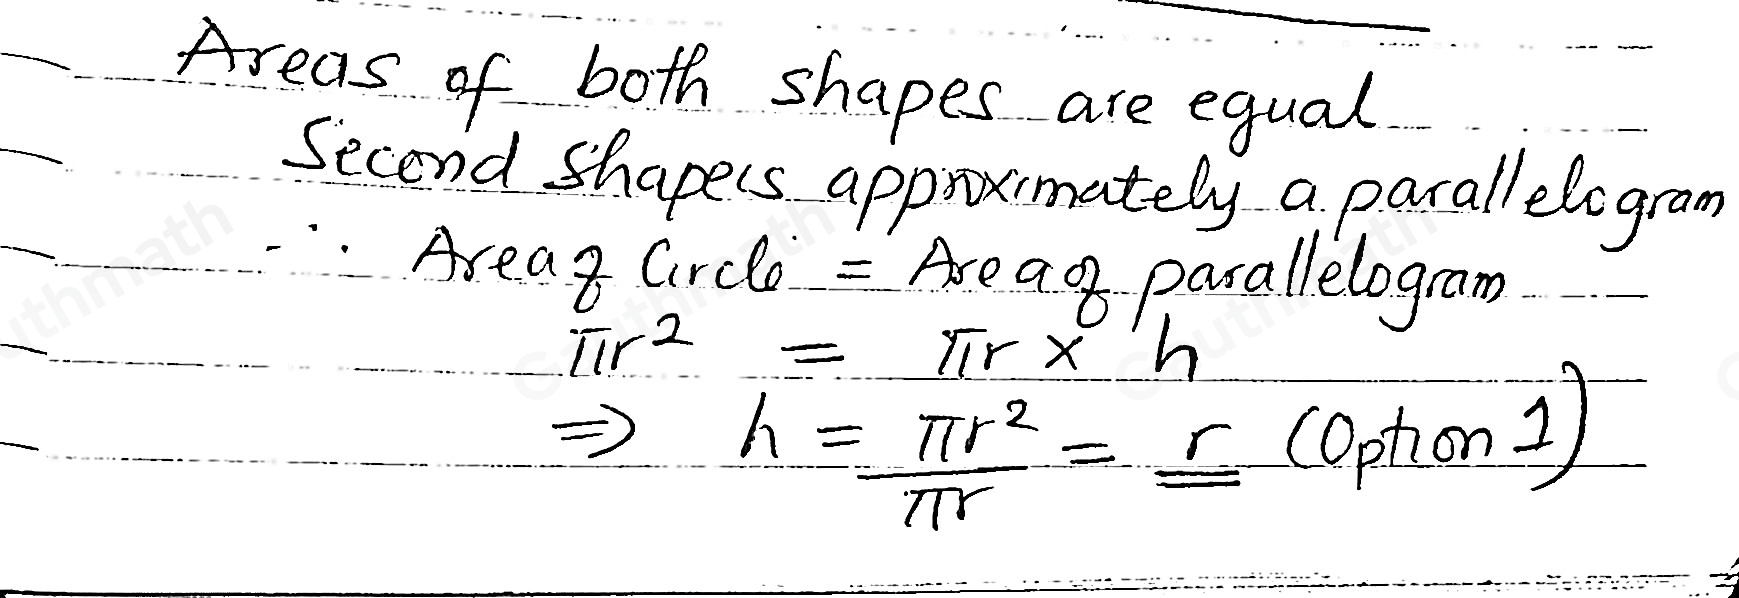 Areas of both shapes are equal
Second shapes approximately a parallelogram
∴ Area of Circle = Area of parallelogram
πr² = πr × h
⇒ h = πr²/πr = r (Option 1)